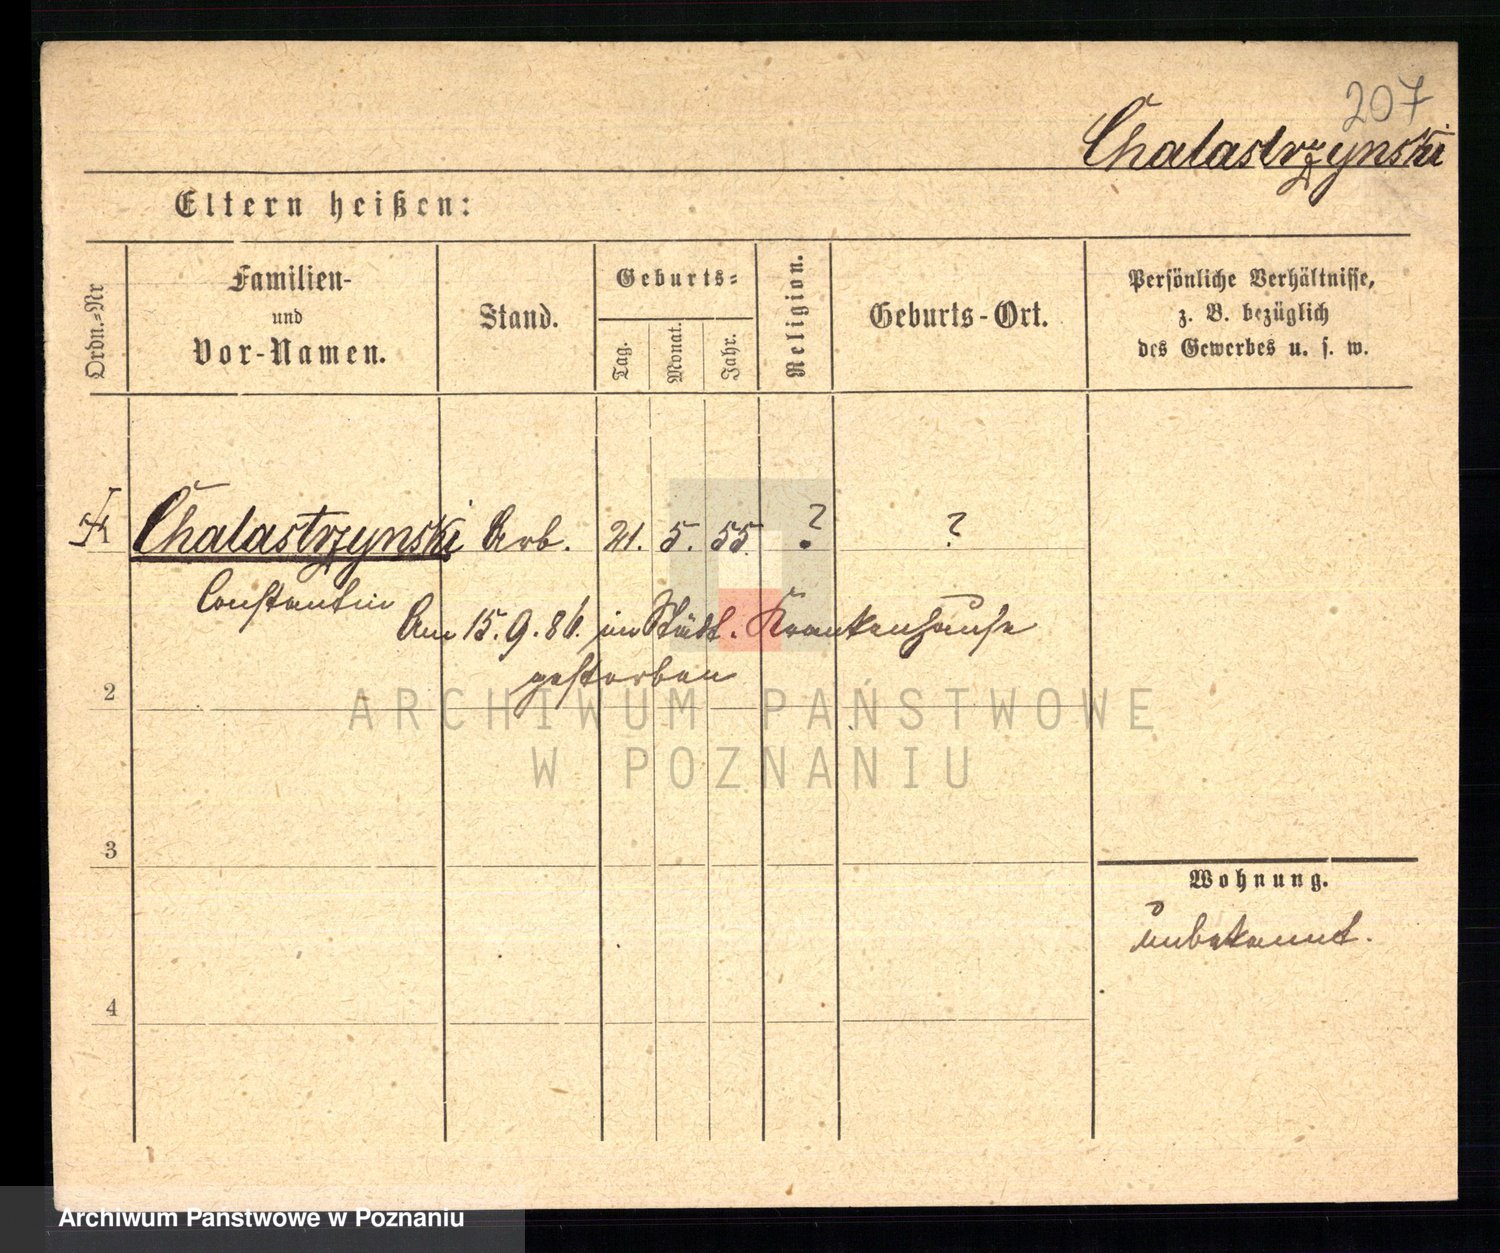 207
Chalastrzynski
Eltern heißen:
Ordn.=Nr
Familien-
und
Vor-Namen.
Stand.
Geburts=
Tag.
Monat.
Jahr.
Religion.
Geburts-Ort.
Persönliche Verhältnisse,
z. B. bezüglich
des Gewerbes u. s. w.
Chalastrzynski Arb. 21. 5. 55. ? ?
Constantin
Am 15.9.86. im Städt. Krankenhause
gestorben
2
ARCHIWUM PAŃSTWOWE
W POZNANIU
3
Wohnung.
unbekannt.
4
Archiwum Państwowe w Poznaniu